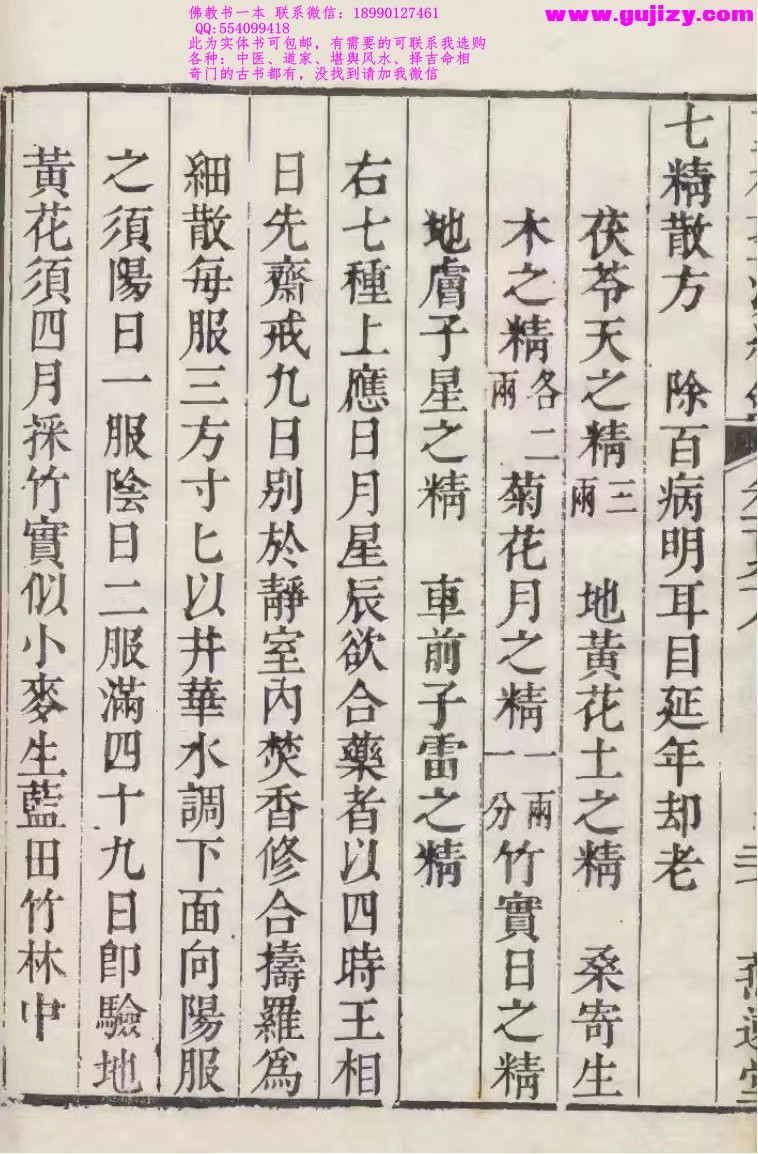 佛教书一本 联系微信：18990127461
QQ:554099418
此为实体书可包邮，有需要的可联系我选购
各种：中医、道家、堪舆风水、择吉命相
奇门的古书都有，没找到请加我微信
www.gujizy.com
七精散方 除百病明耳目延年却老
茯苓天之精三兩 地黃花土之精 桑寄生
木之精各二兩 菊花月之精一兩一分 竹實日之精
地膚子星之精 車前子雷之精
右七種上應日月星辰欲合藥者以四時王相
日先齋戒九日別於靜室內焚香修合擣羅爲
細散每服三方寸匕以井華水調下面向陽服
之須陽日一服陰日二服滿四十九日卽驗地
黃花須四月採竹實似小麥生藍田竹林中